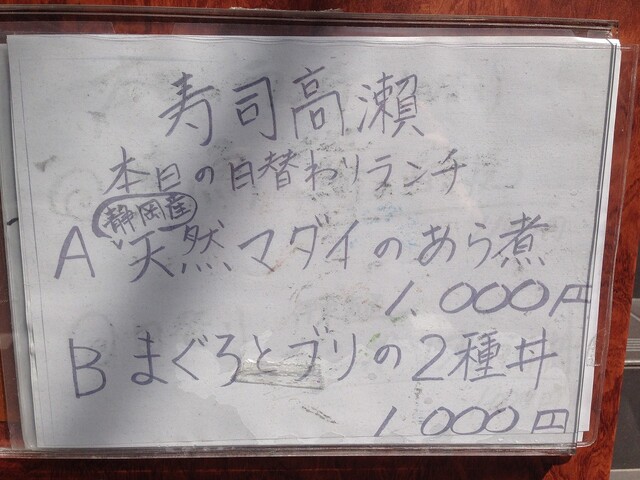 寿司高瀬
本日の日替わりランチ
静岡産
A 天然マダイのあら煮
1,000円
B まぐろとブリの2種丼
1,000円